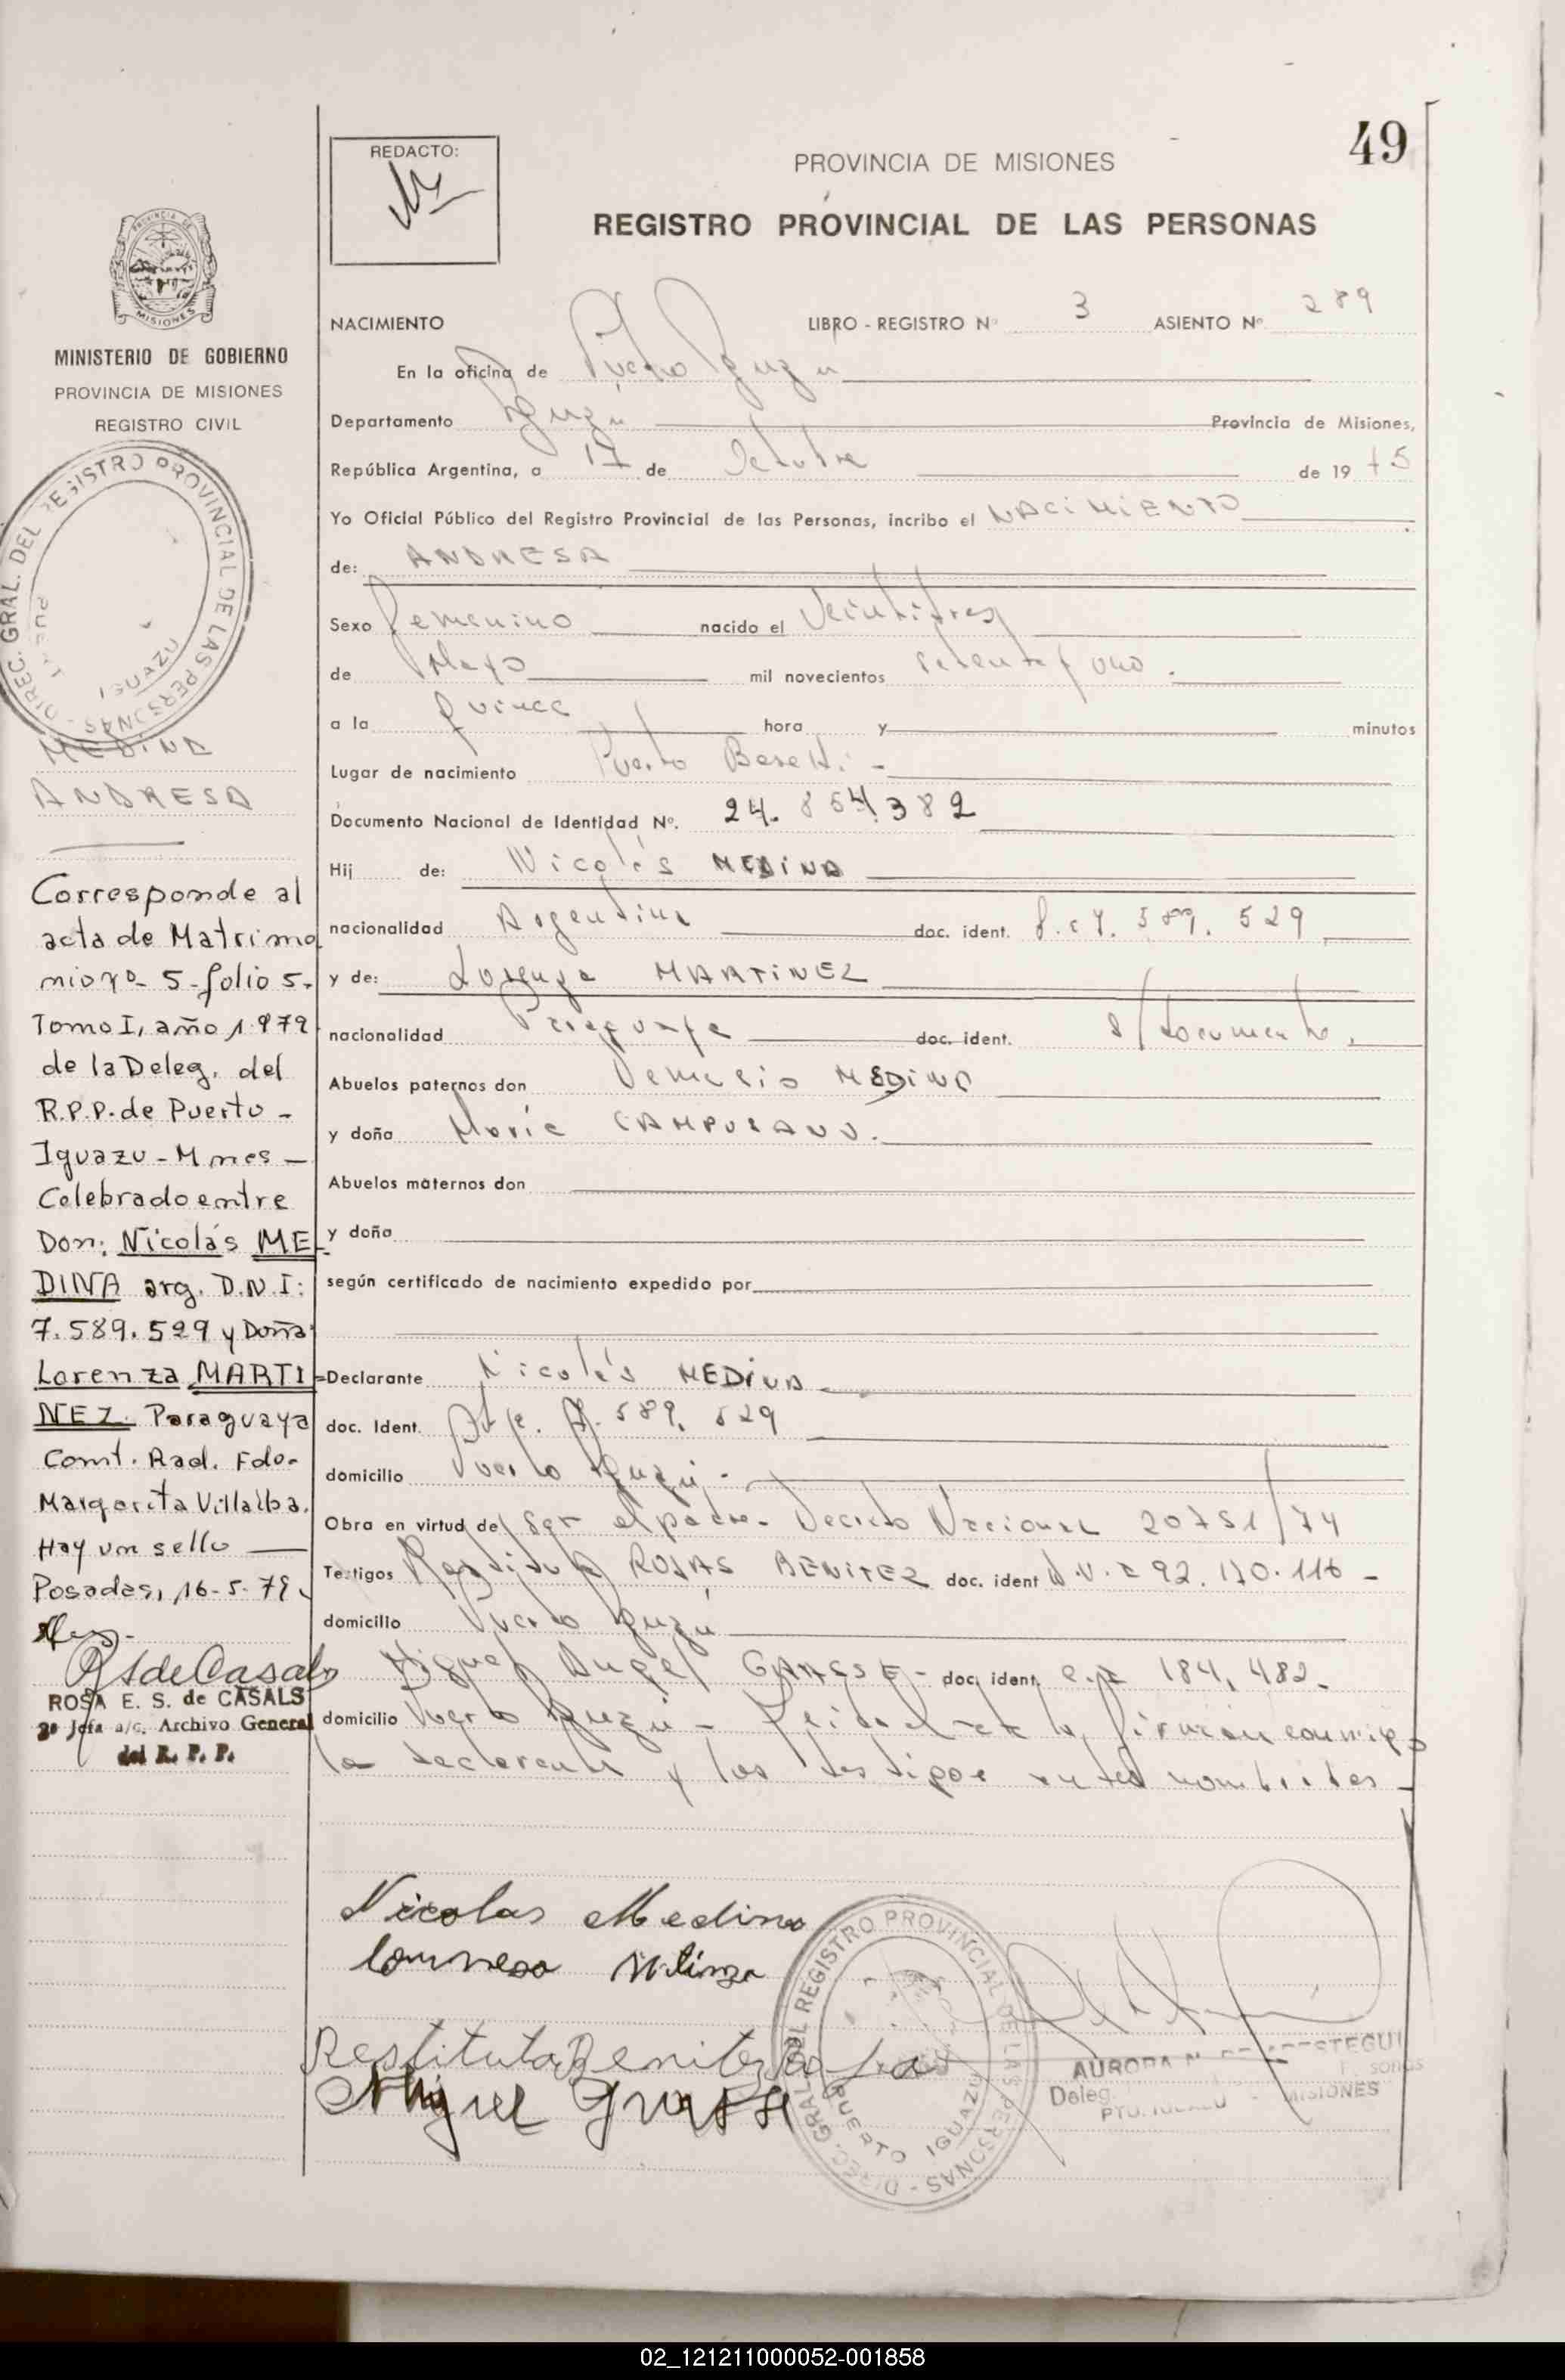 49
REDACTO:
PROVINCIA DE MISIONES
REGISTRO PROVINCIAL DE LAS PERSONAS
NACIMIENTO LIBRO - REGISTRO Nº 3 ASIENTO Nº 289
En la oficina de Puerto Iguazu
Departamento Iguazu Provincia de Misiones,
República Argentina, a 17 de Octubre de 19 75
Yo Oficial Público del Registro Provincial de las Personas, incribo el NACIMIENTO
de: ANDRESA
Sexo femenino nacido el Veintitres
de Mayo mil novecientos setenta y uno.
a la quince hora y minutos
Lugar de nacimiento Puerto
Documento Nacional de Identidad Nº. 24.854.382
Hij de: Nicolás MEDINA
nacionalidad Argentina doc. ident. 7.589.529
y de: Lorenza MARTINEZ
nacionalidad Paraguaya doc. ident. s/documento.
Abuelos paternos don MEDINA
y doña María
Abuelos maternos don
y doña
según certificado de nacimiento expedido por
Declarante Nicolás MEDINA
doc. Ident. 7.589.529
domicilio Puerto Iguazú -
Obra en virtud de ser el padre - Decreto Nacional 20751/74
Testigos Restituta ROJAS BENITEZ doc. ident 92.170.116 -
domicilio Puerto Iguazú
Miguel Angel doc. ident. 184.482.
domicilio Puerto Iguazú - Leída el acta la firman conmigo
la declarante y los testigos antes nombrados -
Nicolas Medina
Restituta Benitez Rojas
Miguel
DIREC. GRAL. DEL REGISTRO PROVINCIAL DE LAS PERSONAS - PUERTO IGUAZU
AURORA
Deleg.
MISIONES
PROVINCIA DE MISIONES
MINISTERIO DE GOBIERNO
PROVINCIA DE MISIONES
REGISTRO CIVIL
DIREC. GRAL. DEL REGISTRO PROVINCIAL DE LAS PERSONAS - PUERTO IGUAZU
MEDINA
ANDRESA
Corresponde al
acta de Matrimo
nio nº- 5- folio 5-
Tomo I, año 1.979
de la Deleg. del
R.P.P. de Puerto -
Iguazu - Mnes -
Celebrado entre
Don: Nicolás ME-
DINA arg. D.N.I:
7.589.529 y Doña
Lorenza MARTI-
NEZ. Paraguaya
Cont. Rad. Fdo-
Margarita Villalba.
Hay un sello
Posadas, 16-5-79
RSdeCasals
ROSA E. S. de CASALS
2ª Jefa a/c. Archivo General
del R. P. P.
02_121211000052-001858